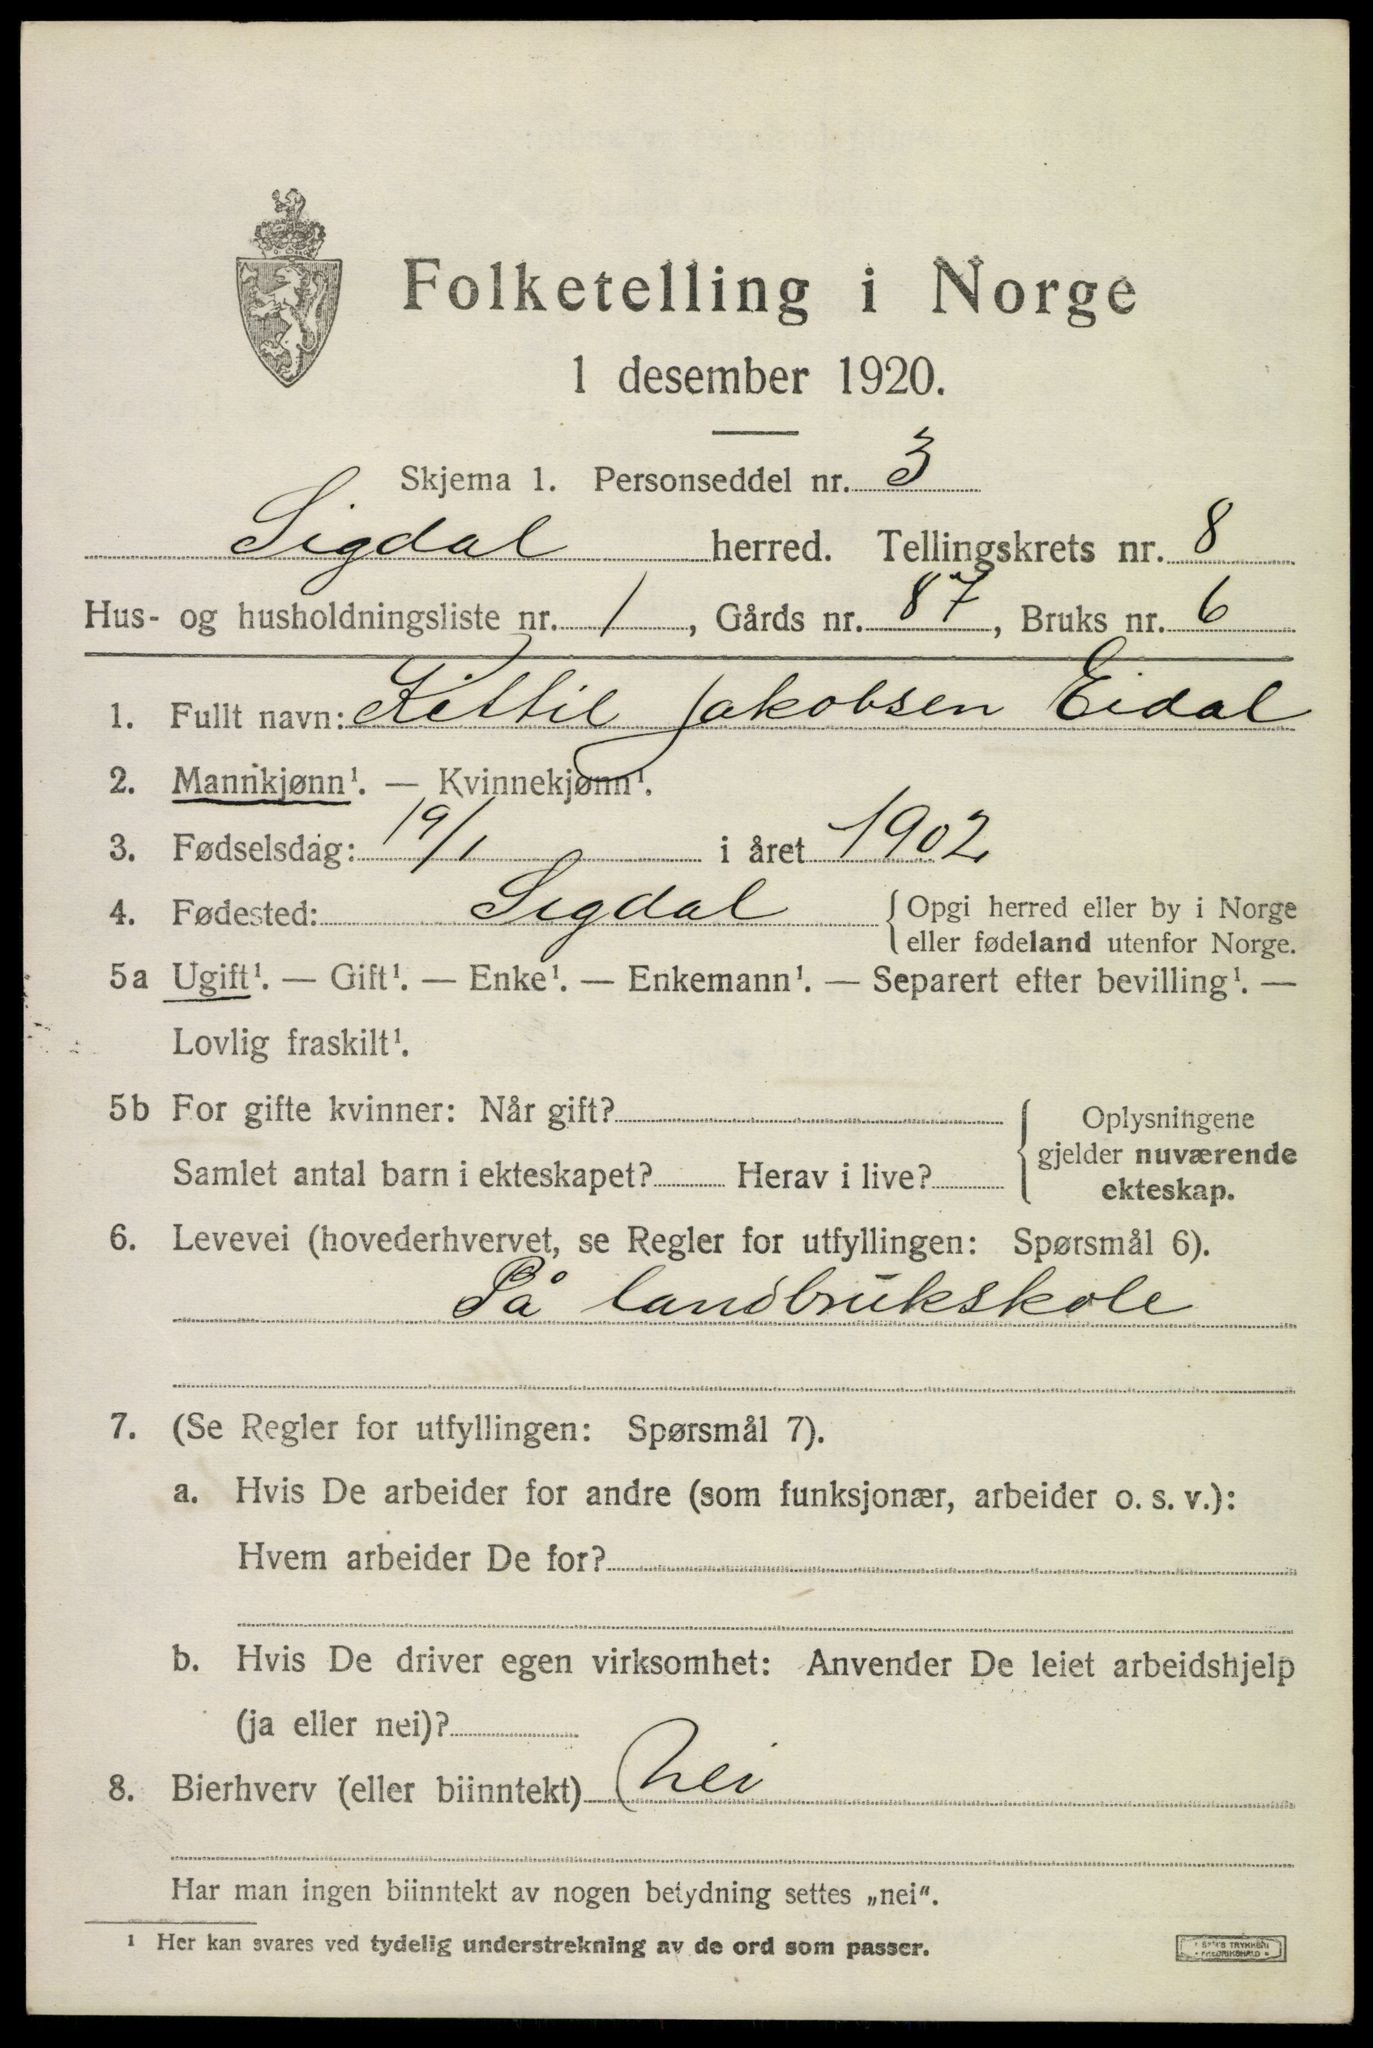 Folketelling i Norge
1 desember 1920.
Skjema 1. Personseddel nr. 3
Sigdal herred. Tellingskrets nr. 8
Hus- og husholdningsliste nr. 1, Gårds nr. 87, Bruks nr. 6
1. Fullt navn: Kittil Jakobsen Eidal
2. Mannkjønn¹. — Kvinnekjønn¹.
3. Fødselsdag: 19/1 i året 1902
4. Fødested: Sigdal { Opgi herred eller by i Norge
eller fødeland utenfor Norge.
5a Ugift¹. — Gift¹. — Enke¹. — Enkemann¹. — Separert efter bevilling¹. —
Lovlig fraskilt¹.
5b For gifte kvinner: Når gift?
Samlet antal barn i ekteskapet? Herav i live?
{ Oplysningene
gjelder nuværende
ekteskap.
6. Levevei (hovederhvervet, se Regler for utfyllingen: Spørsmål 6).
På landbrukskole
7. (Se Regler for utfyllingen: Spørsmål 7).
a. Hvis De arbeider for andre (som funksjonær, arbeider o. s. v.):
Hvem arbeider De for?
b. Hvis De driver egen virksomhet: Anvender De leiet arbeidshjelp
(ja eller nei)?
8. Bierhverv (eller biinntekt) Nei
Har man ingen biinntekt av nogen betydning settes „nei".
¹ Her kan svares ved tydelig understrekning av de ord som passer.
TRYKKERI
FREDRIKSHALD